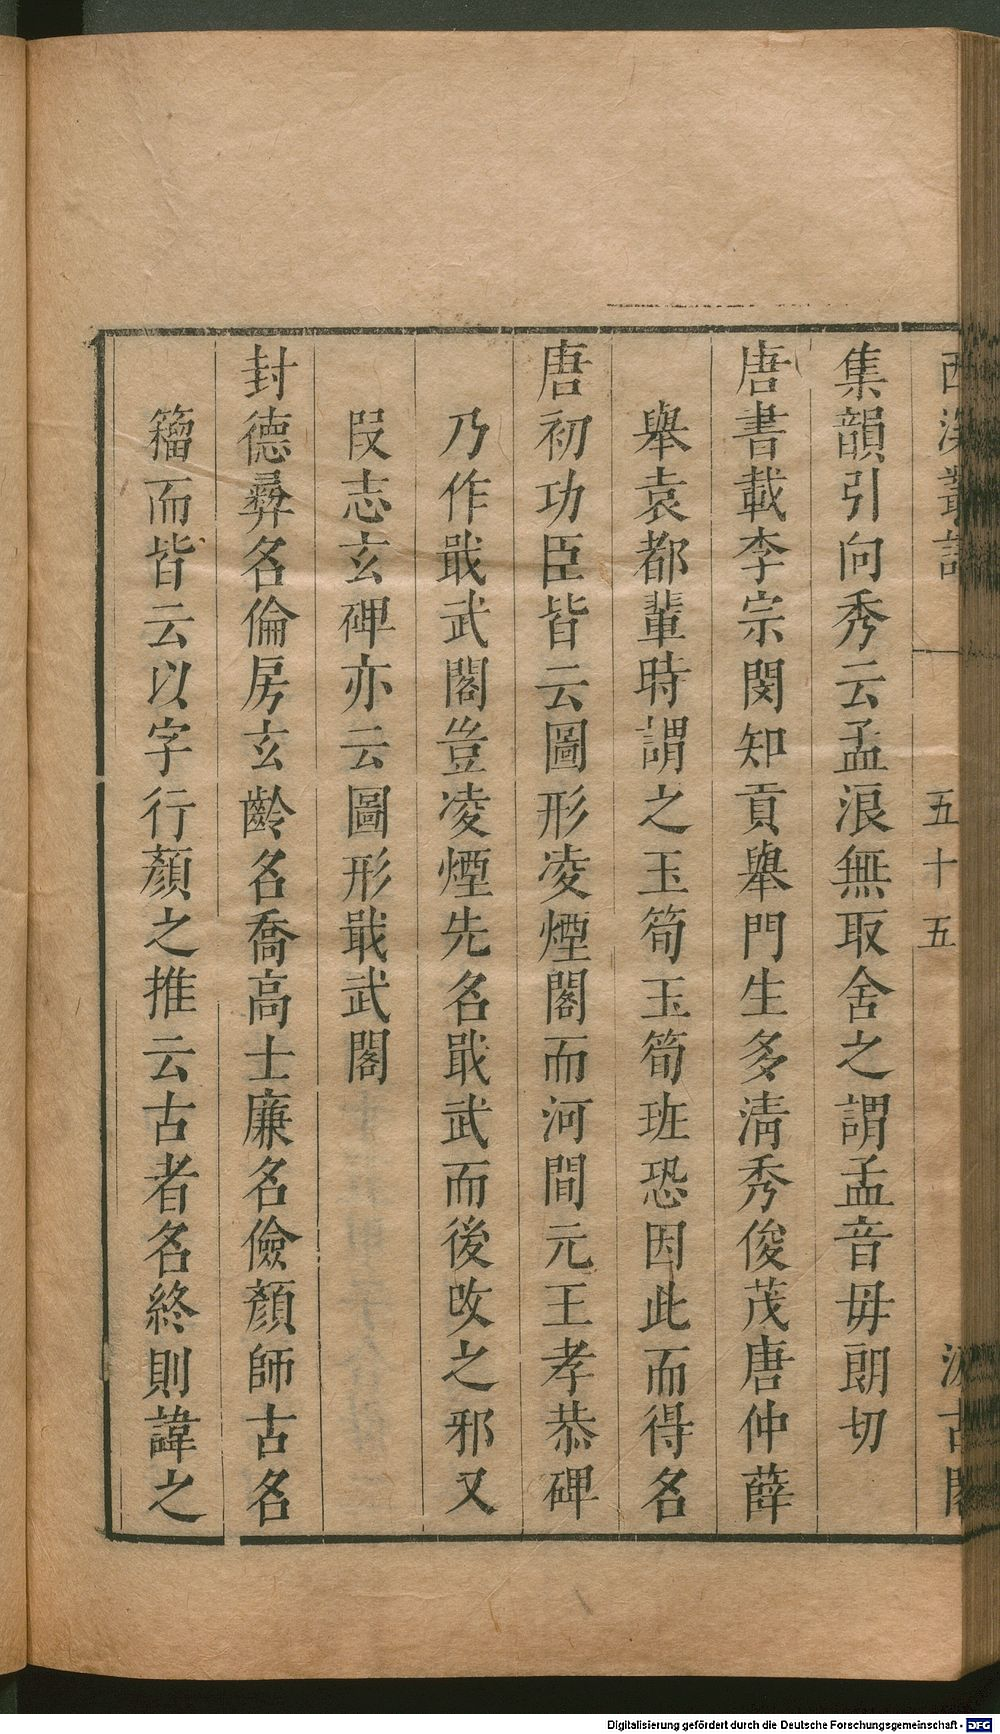 西溪叢語 五十五 汲古閣
集韻引向秀云孟浪無取舍之謂孟音毋朗切
唐書載李宗閔知貢舉門生多清秀俊茂唐仲薛
舉袁都輩時謂之玉筍玉筍班恐因此而得名
唐初功臣皆云圖形凌煙閣而河間元王孝恭碑
乃作戢武閣豈凌煙先名戢武而後攺之邪又
叚志玄碑亦云圖形戢武閣
封德彝名倫房玄齡名喬高士廉名儉顏師古名
籀而皆云以字行顏之推云古者名終則諱之
Digitalisierung gefördert durch die Deutsche Forschungsgemeinschaft - DFG